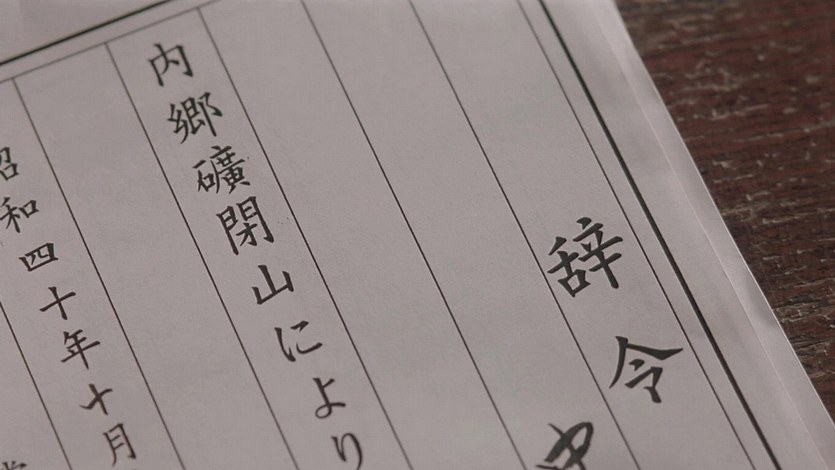 辞令
内郷礦閉山により
昭和四十年十月